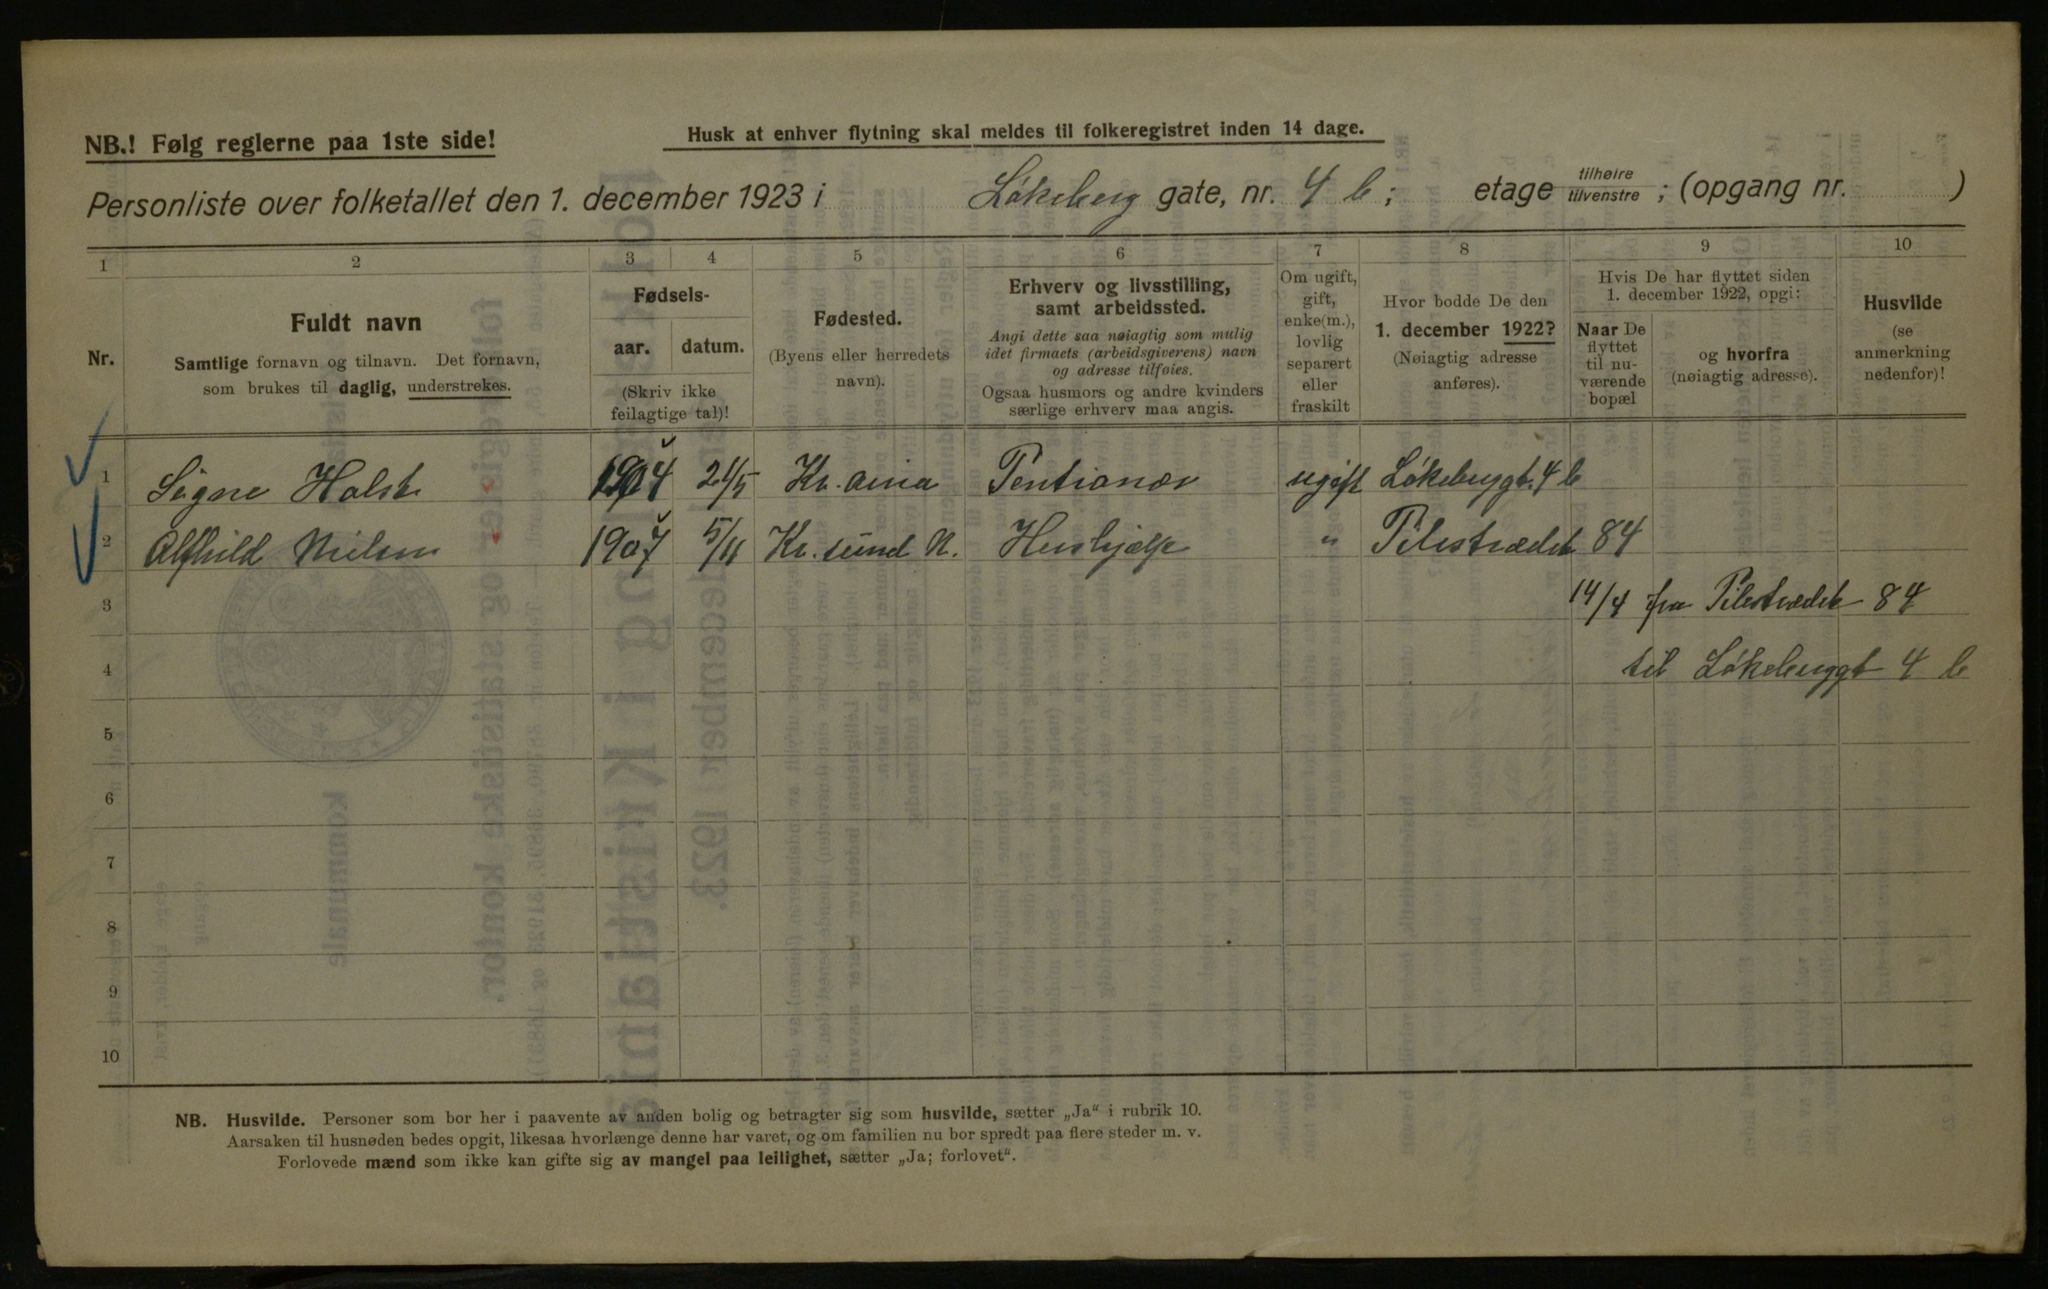 NB.! Følg reglerne paa 1ste side!
Husk at enhver flytning skal meldes til folkeregistret inden 14 dage.
Personliste over folketallet den 1. december 1923 i Løkeberg gate, nr. 4 b; etage tilhøire tilvenstre ; (opgang nr. )
1 2 3 4 5 6 7 8 9 10
Nr.
Fuldt navn
Samtlige fornavn og tilnavn. Det fornavn,
som brukes til daglig, understrekes.
Fødsels-
aar. datum.
(Skriv ikke
feilagtige tal)!
Fødested.
(Byens eller herredets
navn).
Erhverv og livsstilling,
samt arbeidssted.
Angi dette saa nøiagtig som mulig
idet firmaets (arbeidsgiverens) navn
og adresse tilføies.
Ogsaa husmors og andre kvinders
særlige erhverv maa angis.
Om ugift,
gift,
enke(m.),
lovlig
separert
eller
fraskilt
Hvor bodde De den
1. december 1922?
(Nøiagtig adresse
anføres).
Hvis De har flyttet siden
1. december 1922, opgi:
Naar De
flyttet
til nu-
værende
bopæl
og hvorfra
(nøiagtig adresse).
Husvilde
(se
anmerkning
nedenfor)!
1 Signe Holst 21/5 Kr.ania Pentionær ugift Løkeberggt. 4 b
2 Alfhild Nielsen 1907 5/11 Kr.sund N. Hushjælp " Pilestrædet 84
3 14/4 fra Pilestrædet 84
4 til Løkeberggt 4 b
5
6
7
8
9
10
NB. Husvilde. Personer som bor her i paavente av anden bolig og betragter sig som husvilde, sætter „Ja“ i rubrik 10.
Aarsaken til husnøden bedes opgit, likesaa hvorlænge denne har varet, og om familien nu bor spredt paa flere steder m. v.
Forlovede mænd som ikke kan gifte sig av mangel paa leilighet, sætter „Ja; forlovet“.